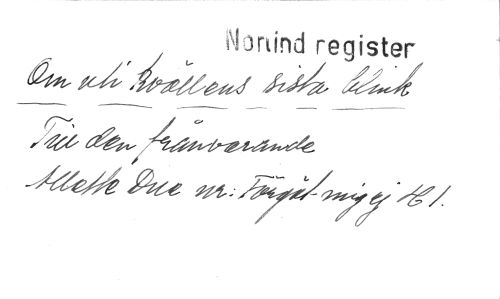 Norlind register
Om uti Kvällens sista blink
Till den frånvarande
Allette Due nr: Förgät-mig ej H 1.